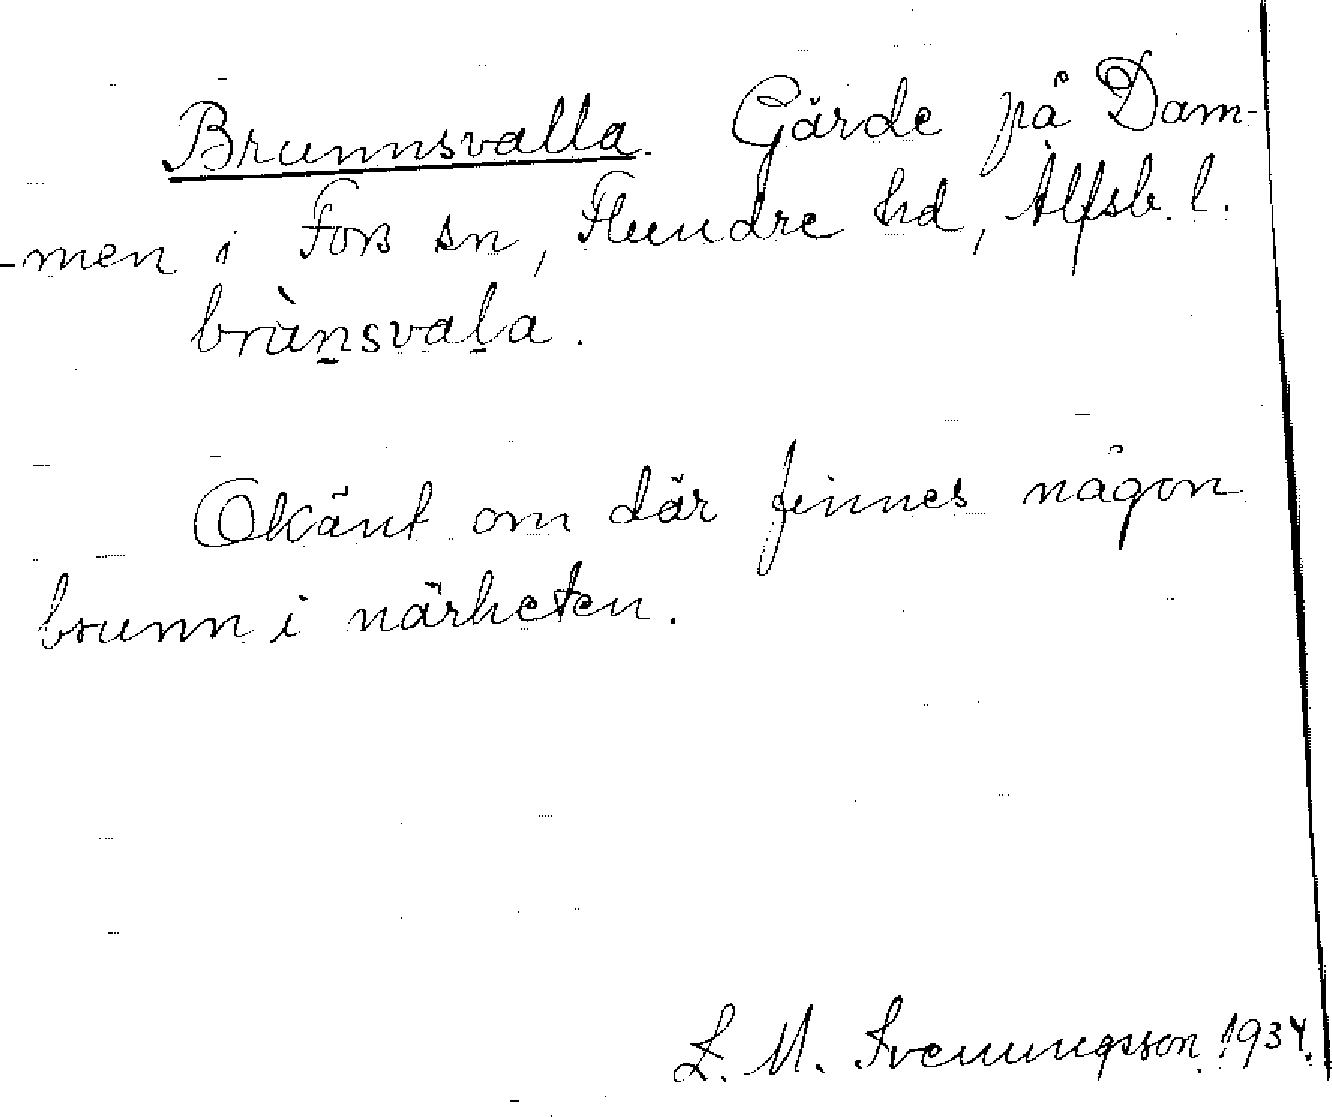 Brunnsvalla. Gärde på Dam-
men i Fors sn, Flundre hd, Älfsb. l.
brànsvala.
Okänt om där finnes någon
brunn i närheten.
L. M. Svenungsson 1934.